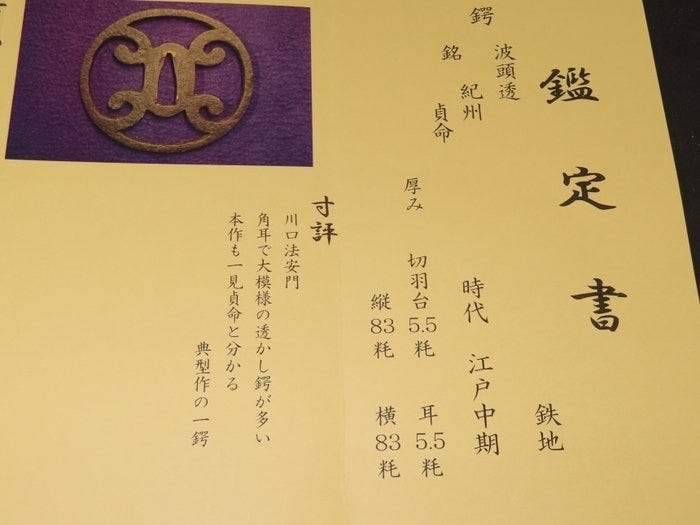 鑑定書
鉄地
鍔 波頭透
銘 紀州 貞命
時代 江戸中期
厚み 切羽台5.5粍 耳5.5粍
縦83粍 横83粍
寸評
川口法安門
角耳で大模様の透かし鍔が多い
本作も一見貞命と分かる
典型作の一鍔